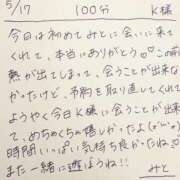 5/17 100分 K様
今日は初めてみとに会いに来て
くれて、本当にありがとう♡この前
熱が出てしまって、会うことが出来な
かったけど、予約を取り直してくれて
ようやく今日K様に会うことが出来
て、めちゃくちゃ嬉しかったよ(o'∀'o)
時間いっぱい気持ち良かったね♡
また一緒に遊ぼうね!!
みと